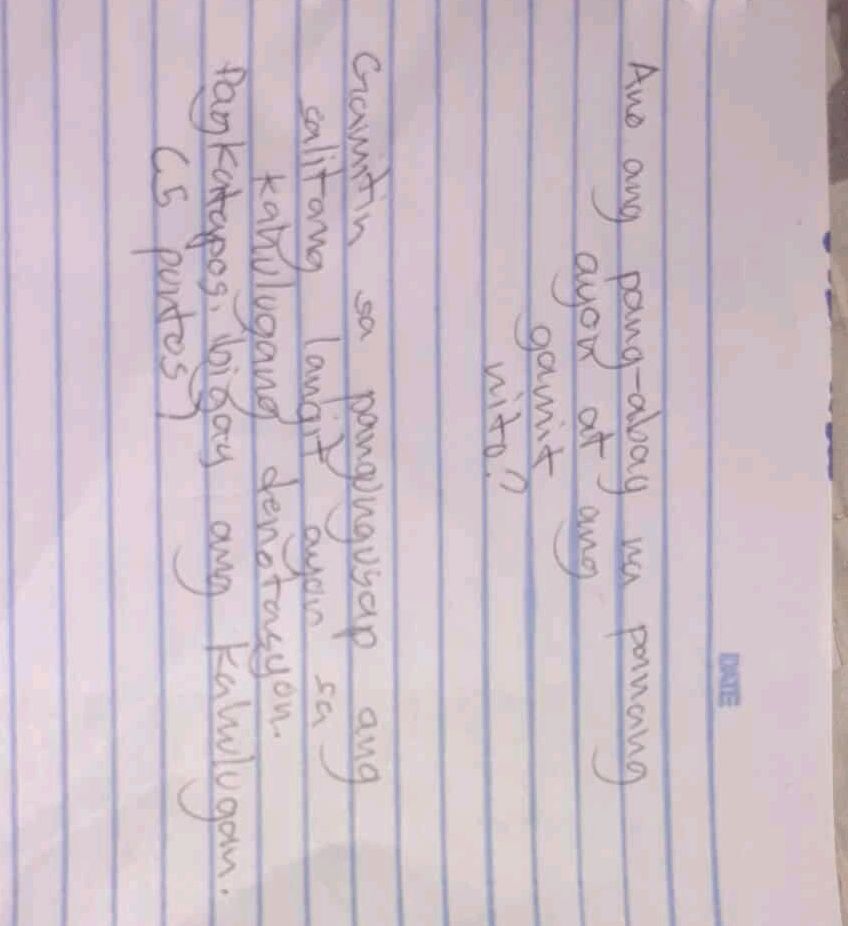 DATE
Ano ang pang-abay na panang
ayon at ang
gamit
nito?
Gamitin sa pangungusap ang
salitang langit ayon sa
kahulugang denotasyon.
Pagkatapos, bigay ang kahulugan.
(5 puntos)